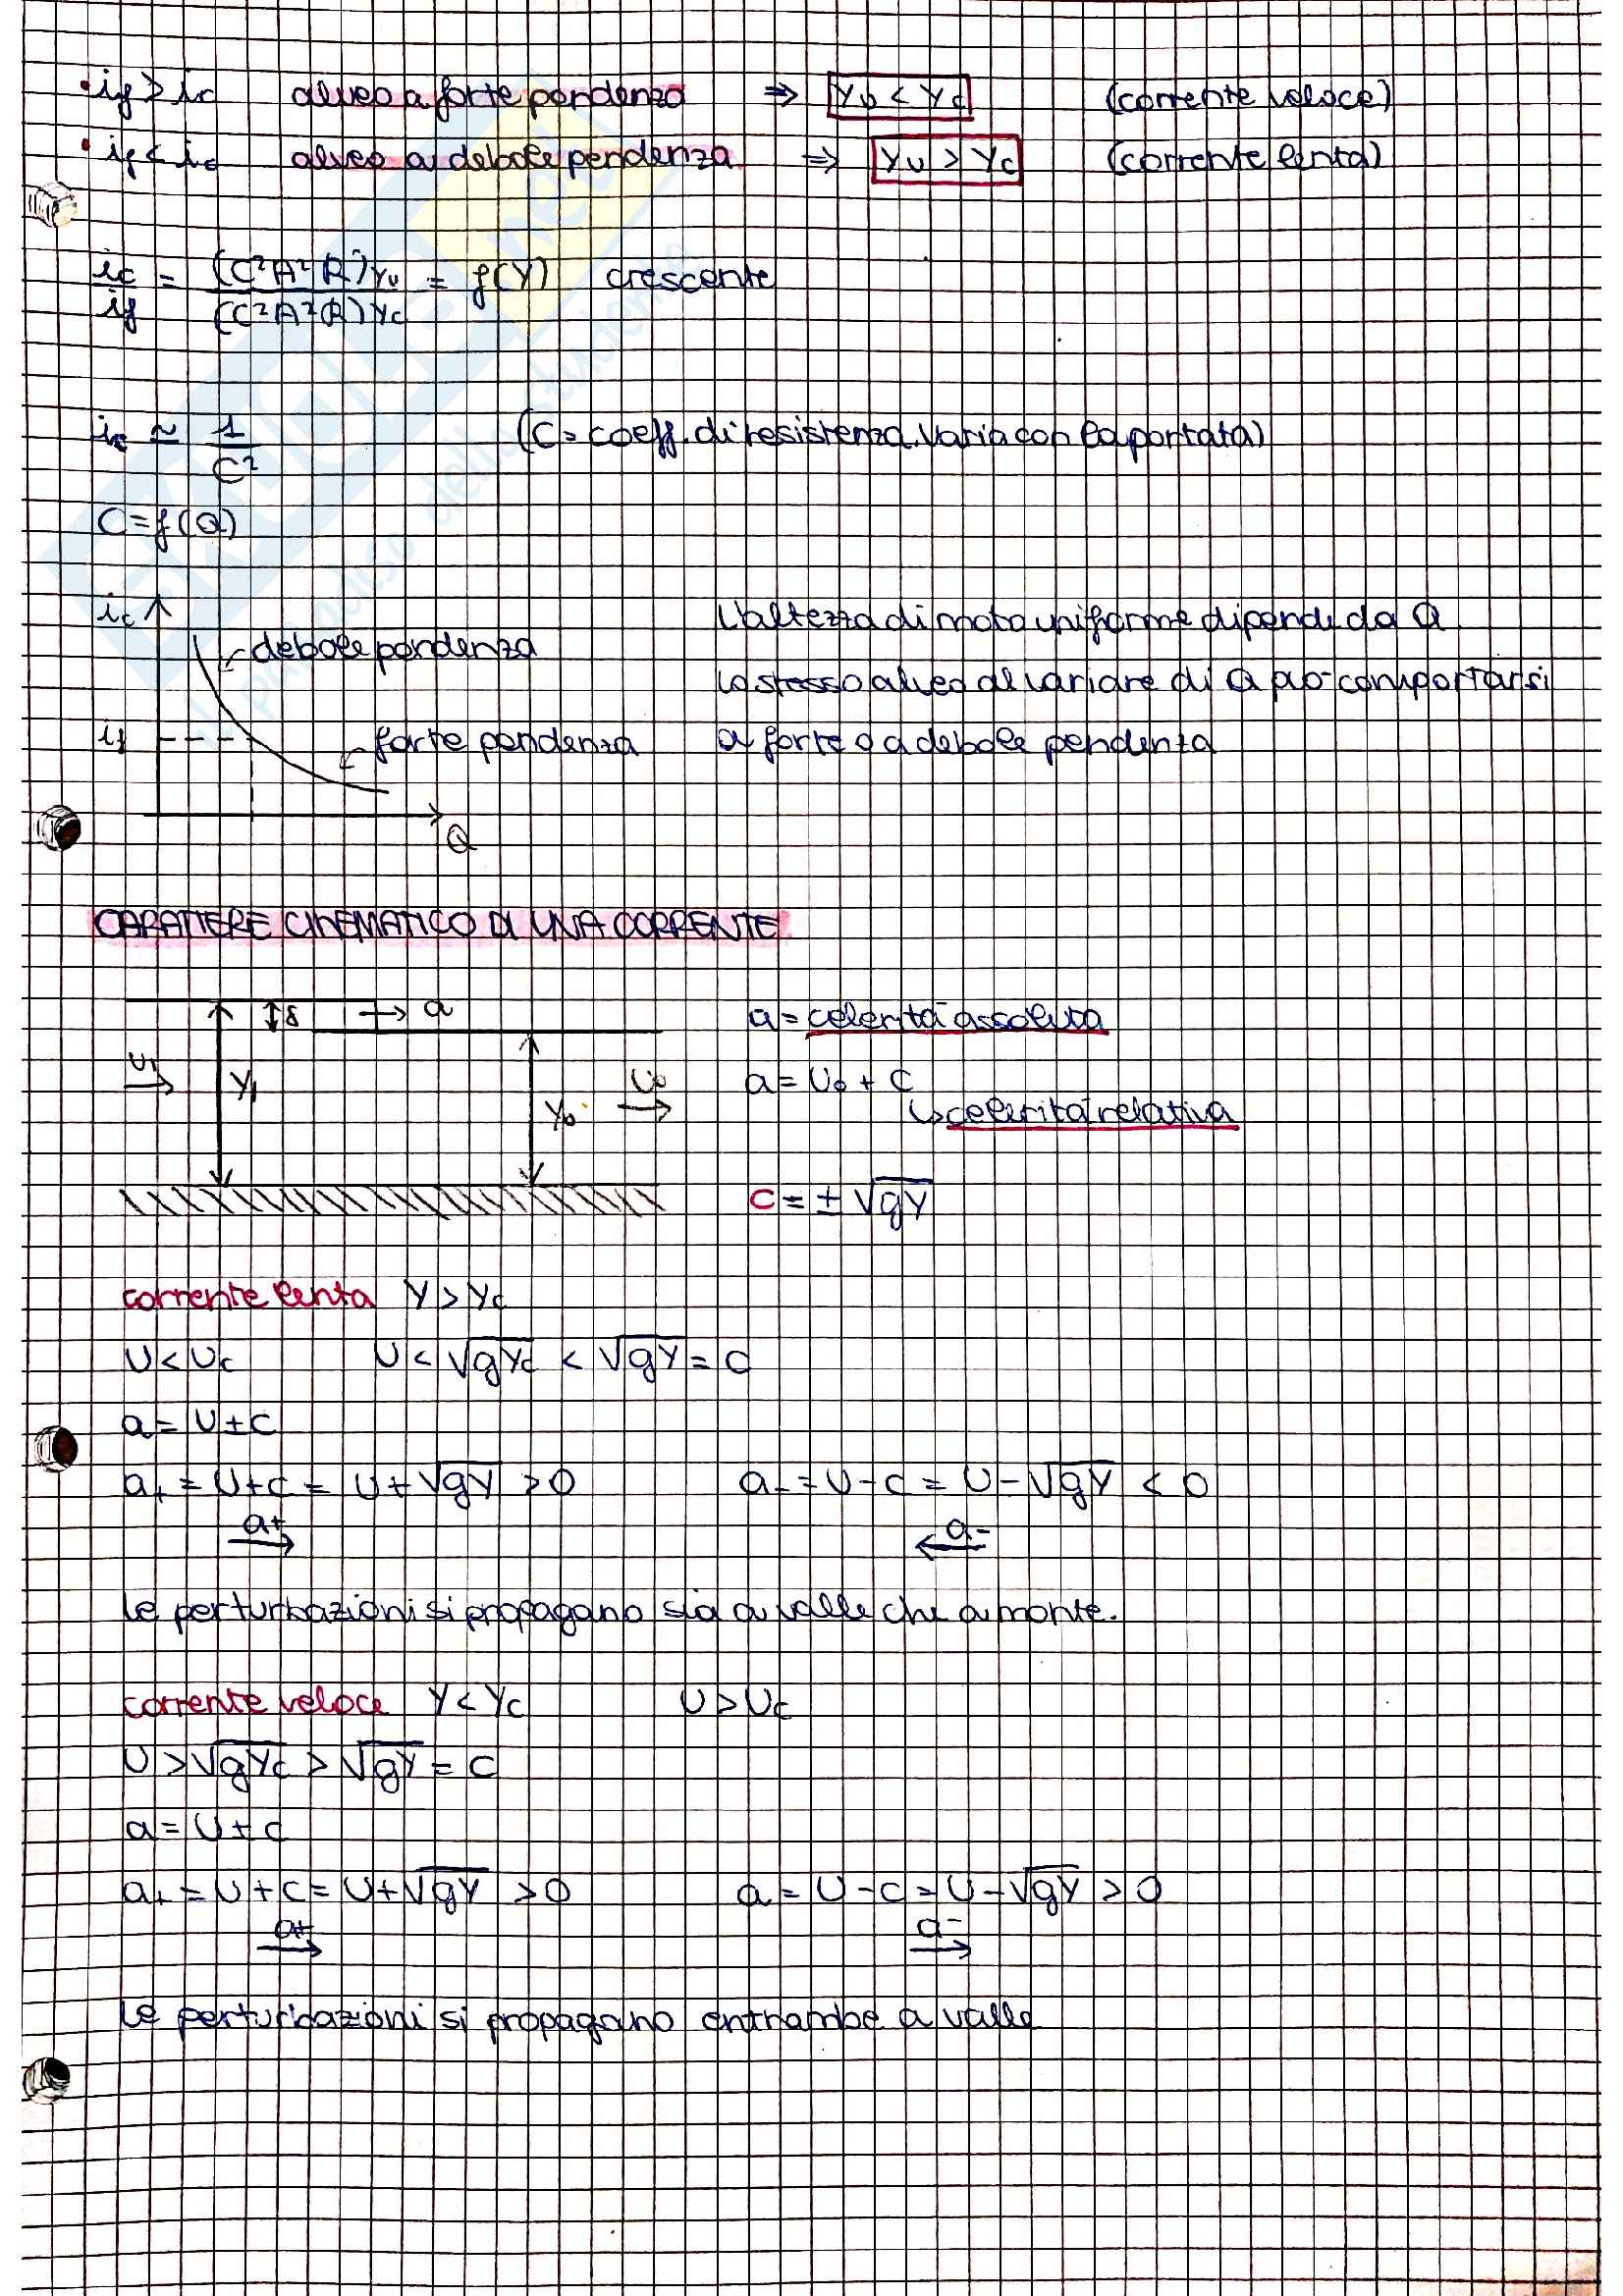 • if > ic alveo a forte pendenza ⇒ Yu < Yc (corrente veloce)
• if < ic alveo a debole pendenza ⇒ Yu > Yc (corrente lenta)
ic/if = (C²A²R)Yu / (C²A²R)Yc = f(Y) crescente
ic ≃ 1/C² (C = coeff. di resistenza. Varia con la portata)
C = f(Q)
ic
debole pendenza
if
forte pendenza
Q
L'altezza di moto uniforme dipende da Q
Lo stesso alveo al variare di Q può comportarsi
a forte o a debole pendenza
CARATTERE CINEMATICO DI UNA CORRENTE
δ → a
U1
Y1
Y0
U0
a = celerità assoluta
a = U0 + c
↳ celerità relativa
c = ± √gY
corrente lenta Y > Yc
U < Uc U < √gYc < √gY = c
a = U ± c
a+ = U + c = U + √gY > 0 a- = U - c = U - √gY < 0
a+ a-
Le perturbazioni si propagano sia a valle che a monte.
corrente veloce Y < Yc U > Uc
U > √gYc > √gY = c
a = U ± c
a+ = U + c = U + √gY > 0 a = U - c = U - √gY > 0
a+ a-
Le perturbazioni si propagano entrambe a valle
SKUOLA.net
paradiso dello studente